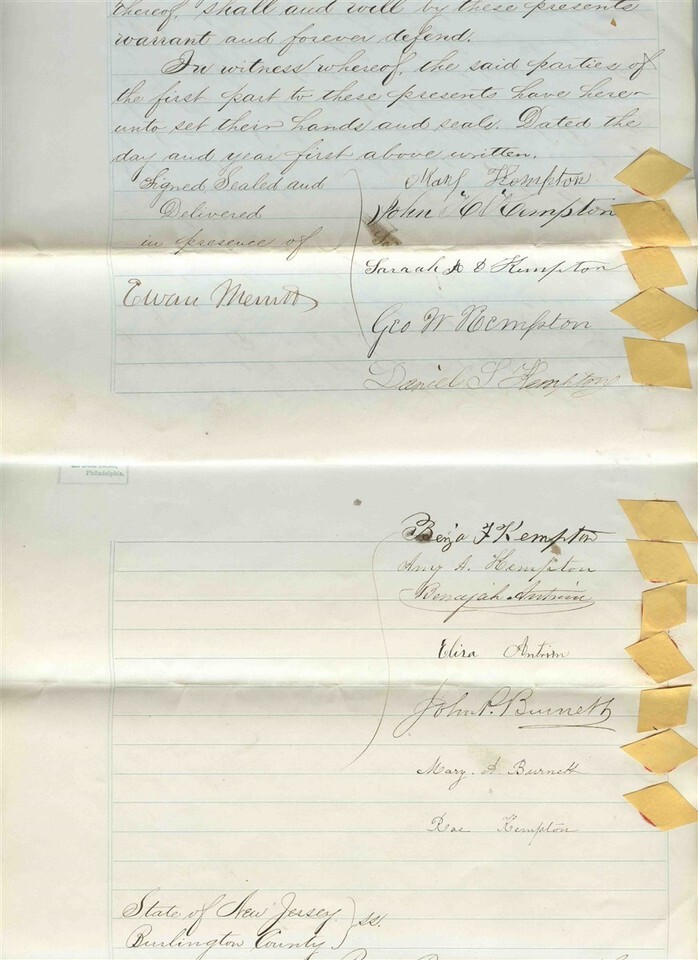 thereof, shall and will by these presents
warrant and forever defend.
In witness whereof, the said parties of
the first part to these presents have here-
unto set their hands and seals. Dated the
day and year first above written.
Signed Sealed and
Delivered
in presence of
Mary Kempton
John C Kempton
Saraah A D Kempton
Ewan Merritt
Geo W Kempton
Daniel S Kempton
Philadelphia.
Benja F Kempton
Amy A. Kempton
Benajah Antrim
Eliza Antrim
John P. Burnett
Mary A Burnett
Kempton
State of New Jersey
Burlington County } ss.